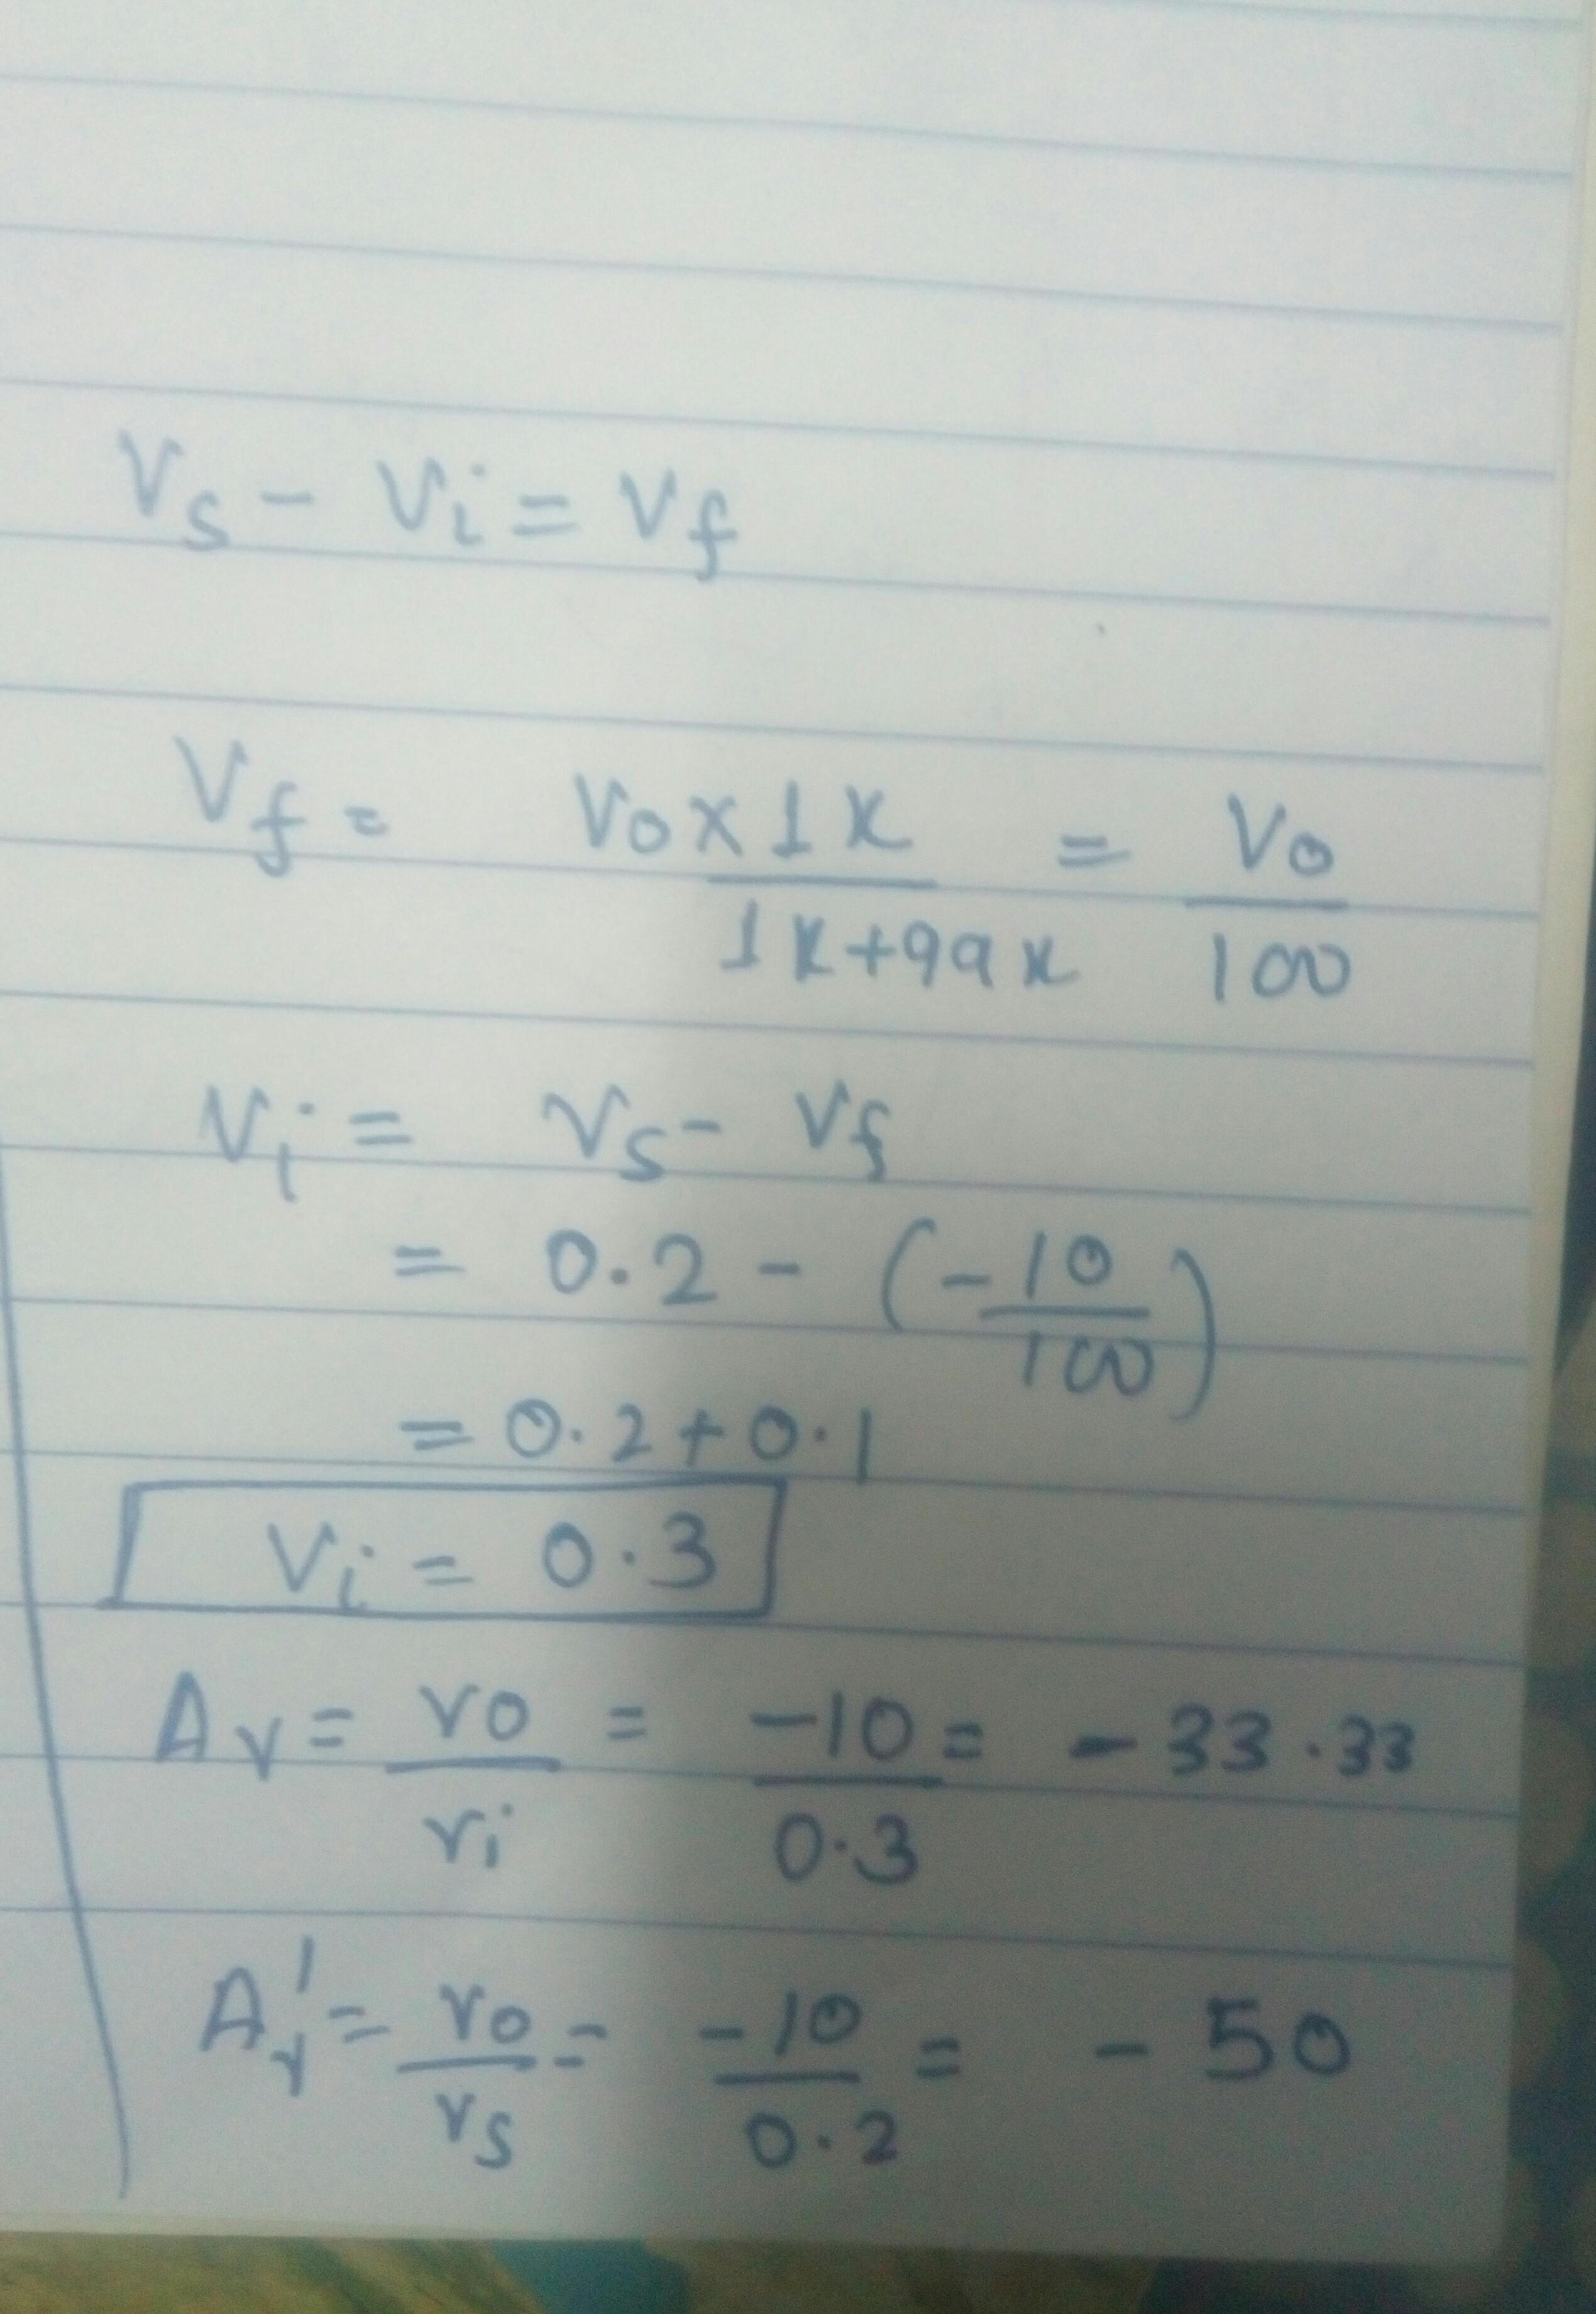 Vs - Vi = Vf
Vf = Vo x 1K / 1K+99K = Vo / 100
Vi = Vs - Vf
= 0.2 - (-10/100)
= 0.2 + 0.1
Vi = 0.3
Av = vo / vi = -10 / 0.3 = -33.33
Av' = vo / vs = -10 / 0.2 = -50